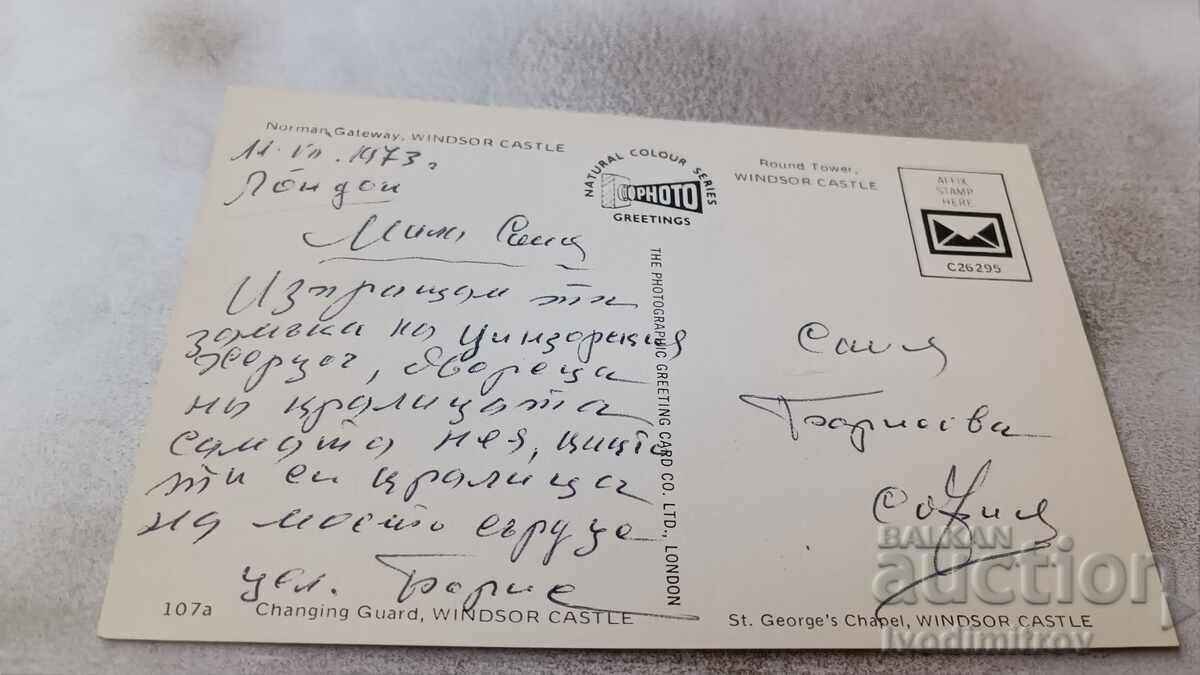 Norman Gateway, WINDSOR CASTLE
11. VII. 1973 г
Лондон
Мила Соня
Изпращам ти
замъка на
херцог, двореца
на кралицата
самата нея,
ти си кралица
на моето сърце
цел. Борис
107a Changing Guard, WINDSOR CASTLE
NATURAL COLOUR SERIES
PHOTO
GREETINGS
THE PHOTOGRAPHIC GREETING CARD CO. LTD., LONDON
Round Tower,
WINDSOR CASTLE
AFFIX
STAMP
HERE
C26295
Соня
Борисова
София
St. George's Chapel, WINDSOR CASTLE
BALKAN
auction
Ivodimitrov